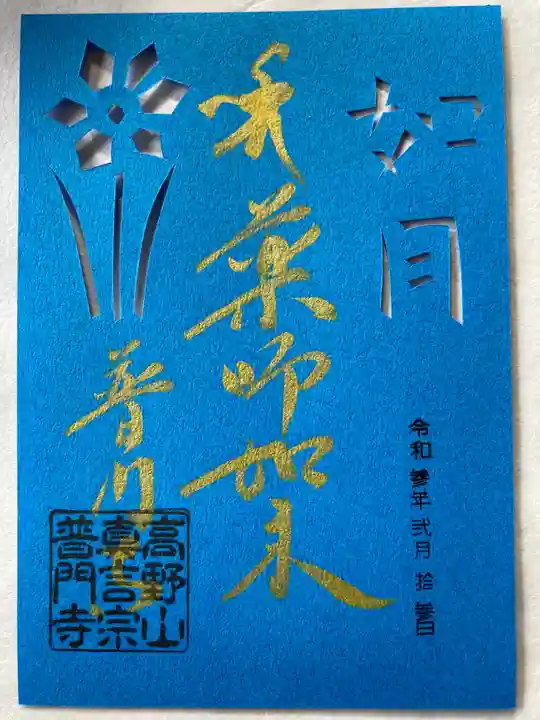 如月
令和参年弐月拾参日
薬師如来
普門寺
高野山
真言宗
普門寺